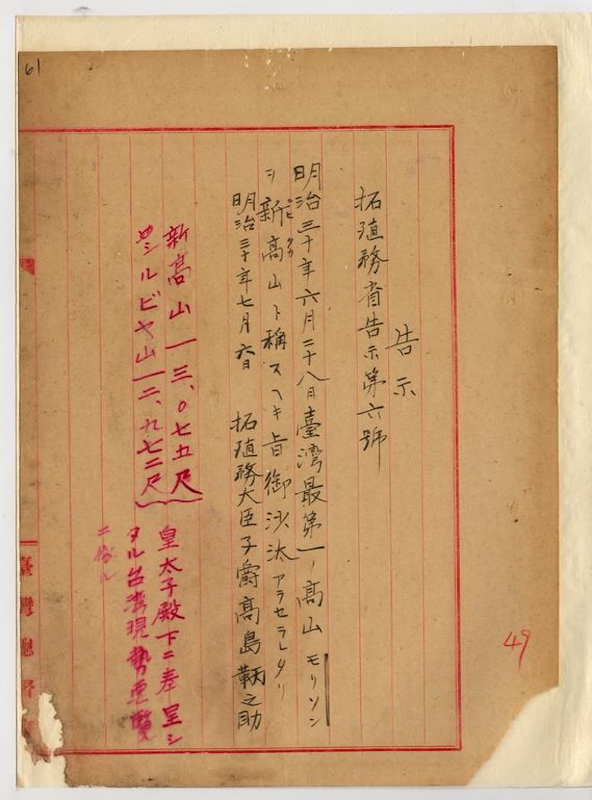 61
告示
拓殖務省告示第六號
明治三十年六月二十八日臺灣最第一ノ高山モリソン
ヲ新高山ト稱スヘキ旨御沙汰アラセラレタリ
ニヒタカ
明治三十年七月六日 拓殖務大臣子爵高島鞆之助
新高山一三、〇七五尺
シルビヤ山一二、九七二尺
皇太子殿下ニ奉呈シ
タル台湾現勢要覽
ニ依ル
臺灣總督
49